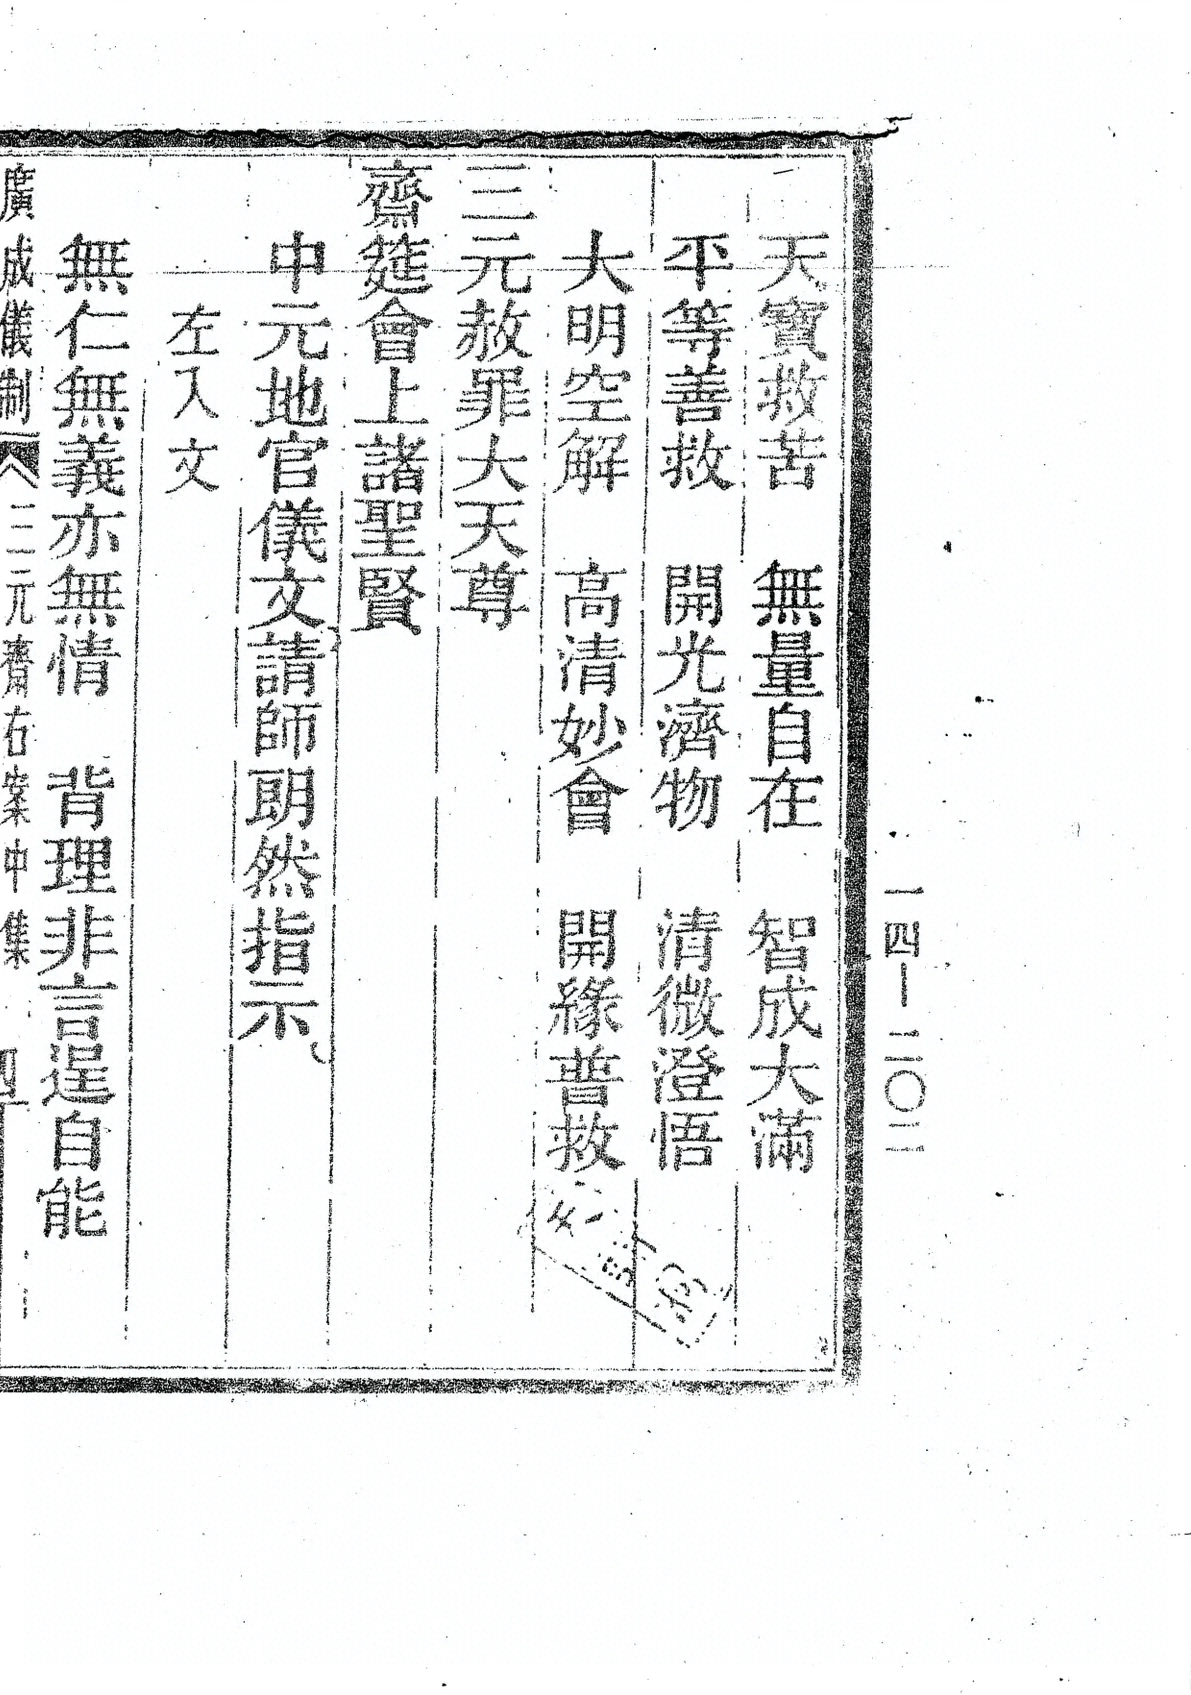 一四—二〇二
天寶救苦　無量自在　智成大滿
平等善救　開光濟物　清微澄悟
大明空解　高清妙會　開緣普救
三元赦罪大天尊
齋筵會上諸聖賢
中元地官儀文請師朗然指示
左入文
無仁無義亦無情　背理非言逞自能
廣成儀制　三元齋右案中集　四